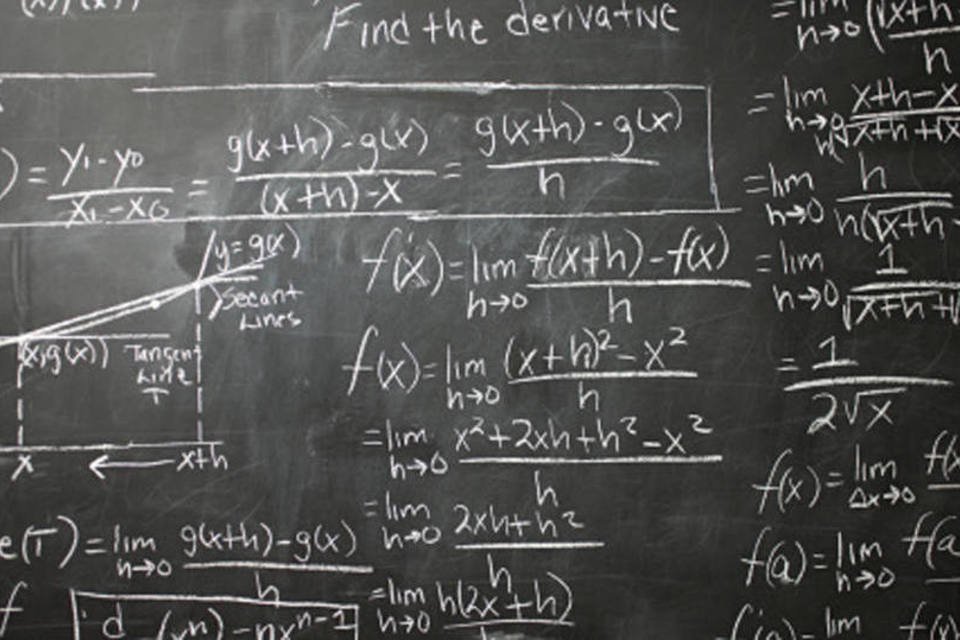 Find the derivative
) = (y₁ - y₀)/(x₁ - x₀) = (g(x+h) - g(x))/((x+h) - x) = (g(x+h) - g(x))/h
y = g(x)
Secant
Lines
(x, g(x))
Tangent
Line
T
x ← x+h
e(T) = lim h→0 (g(x+h) - g(x))/h
d (xⁿ) = nxⁿ⁻¹
f'(x) = lim h→0 (f(x+h) - f(x))/h
f(x) = lim h→0 ((x+h)² - x²)/h
= lim h→0 (x² + 2xh + h² - x²)/h
= lim h→0 (2xh + h²)/h
= lim h→0 h(2x + h)/h
= lim h→0 (√x+h /h
= lim h→0 x+h-x /h(√x+h + √x
= lim h→0 h/h(√x+h
= lim h→0 1/√x+h + √
= 1/(2√x)
f(x) = lim Δx→0 f(x
f(a) = lim h→0 f(a
lim f(x